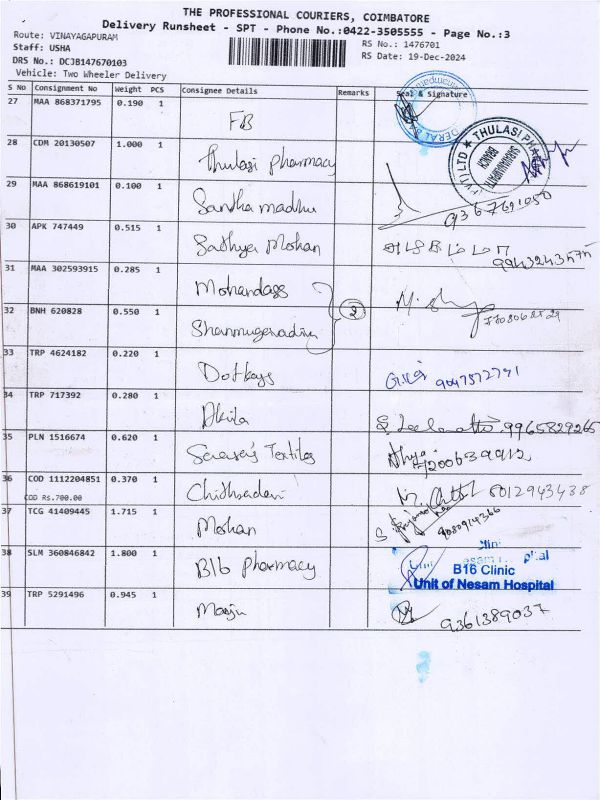 THE PROFESSIONAL COURIERS, COIMBATORE
Delivery Runsheet - SPT - Phone No.:0422-3505555 - Page No.:3
Route: VINAYAGAPURAM
RS No.: 1476701
Staff: USHA
RS Date: 19-Dec-2024
DRS No.: DCJB147670103
Vehicle: Two Wheeler Delivery
S No Consignment No Weight PCS Consignee Details Remarks Seal & Signature
27 MAA 868371795 0.190 1 FB
28 CDM 20130507 1.000 1 Thulasi pharmacy THULASI PHARMACY BRANCH
29 MAA 868619101 0.100 1 Santha madhu
30 APK 747449 0.515 1 Sathya Mohan
31 MAA 302593915 0.285 1 Mohandass 2
32 BNH 620828 0.550 1
33 TRP 4624182 0.220 1 9047572791
34 TRP 717392 0.280 1 Akila 9965829265
35 PLN 1516674 0.620 1
36 COD 1112204851 0.370 1 8012943438
COD Rs.700.00
37 TCG 41409445 1.715 1 Mohan 9080914366
38 SLM 360846842 1.800 1 B16 pharmacy B16 Clinic
Unit of Nesam Hospital
39 TRP 5291496 0.945 1 Manju 9361389037